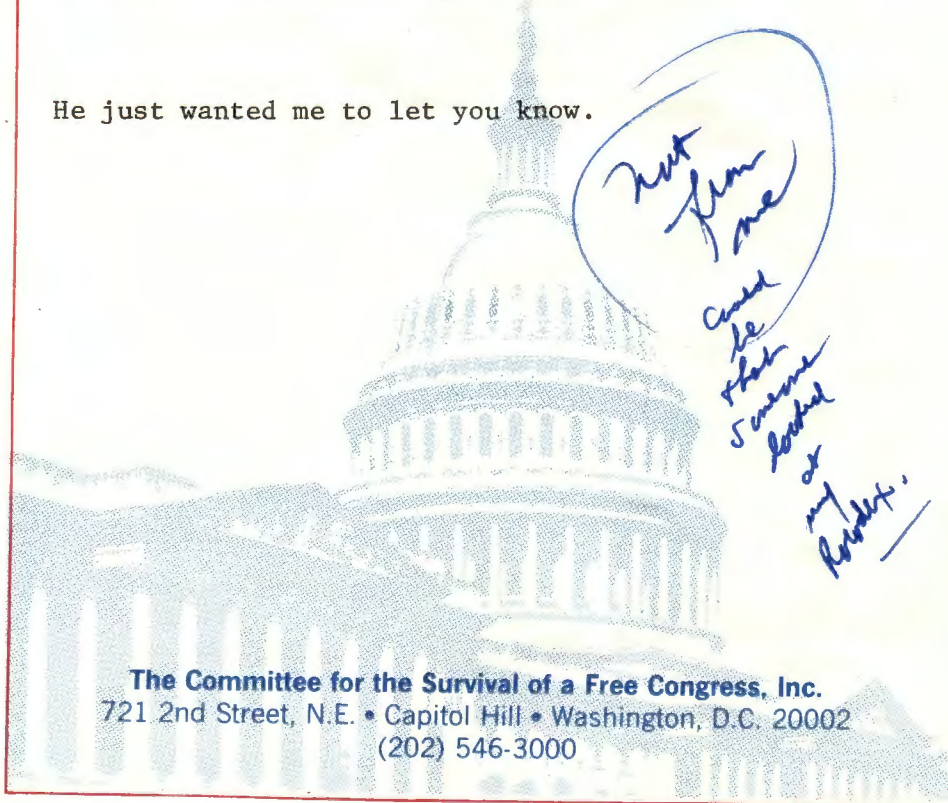 He just wanted me to let you know.
Not
from
me
could
be
that
someone
looked
at
my
Rolodex.
The Committee for the Survival of a Free Congress, Inc.
721 2nd Street, N.E. • Capitol Hill • Washington, D.C. 20002
(202) 546-3000